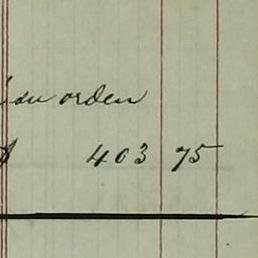 su orden
$ 403 75